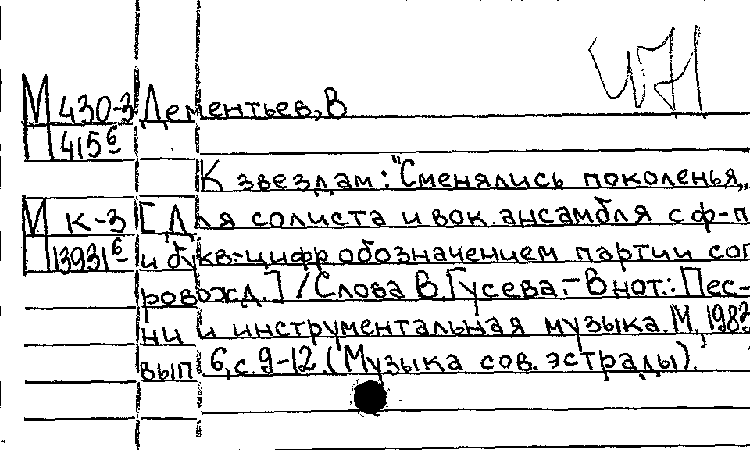 М 430-3 Дементьев, В
М 415б
К звездам: "Сменялись поколенья,,
М к-3 [Для солиста и вок. ансамбля с ф-п
13931б и букв-цифр обозначением партии соп
ровожд.] / Слова В. Гусева.- В нот.: Пес-
ни и инструментальная музыка. М., 1983
вып 6, с. 9-12. (Музыка сов. эстрады).